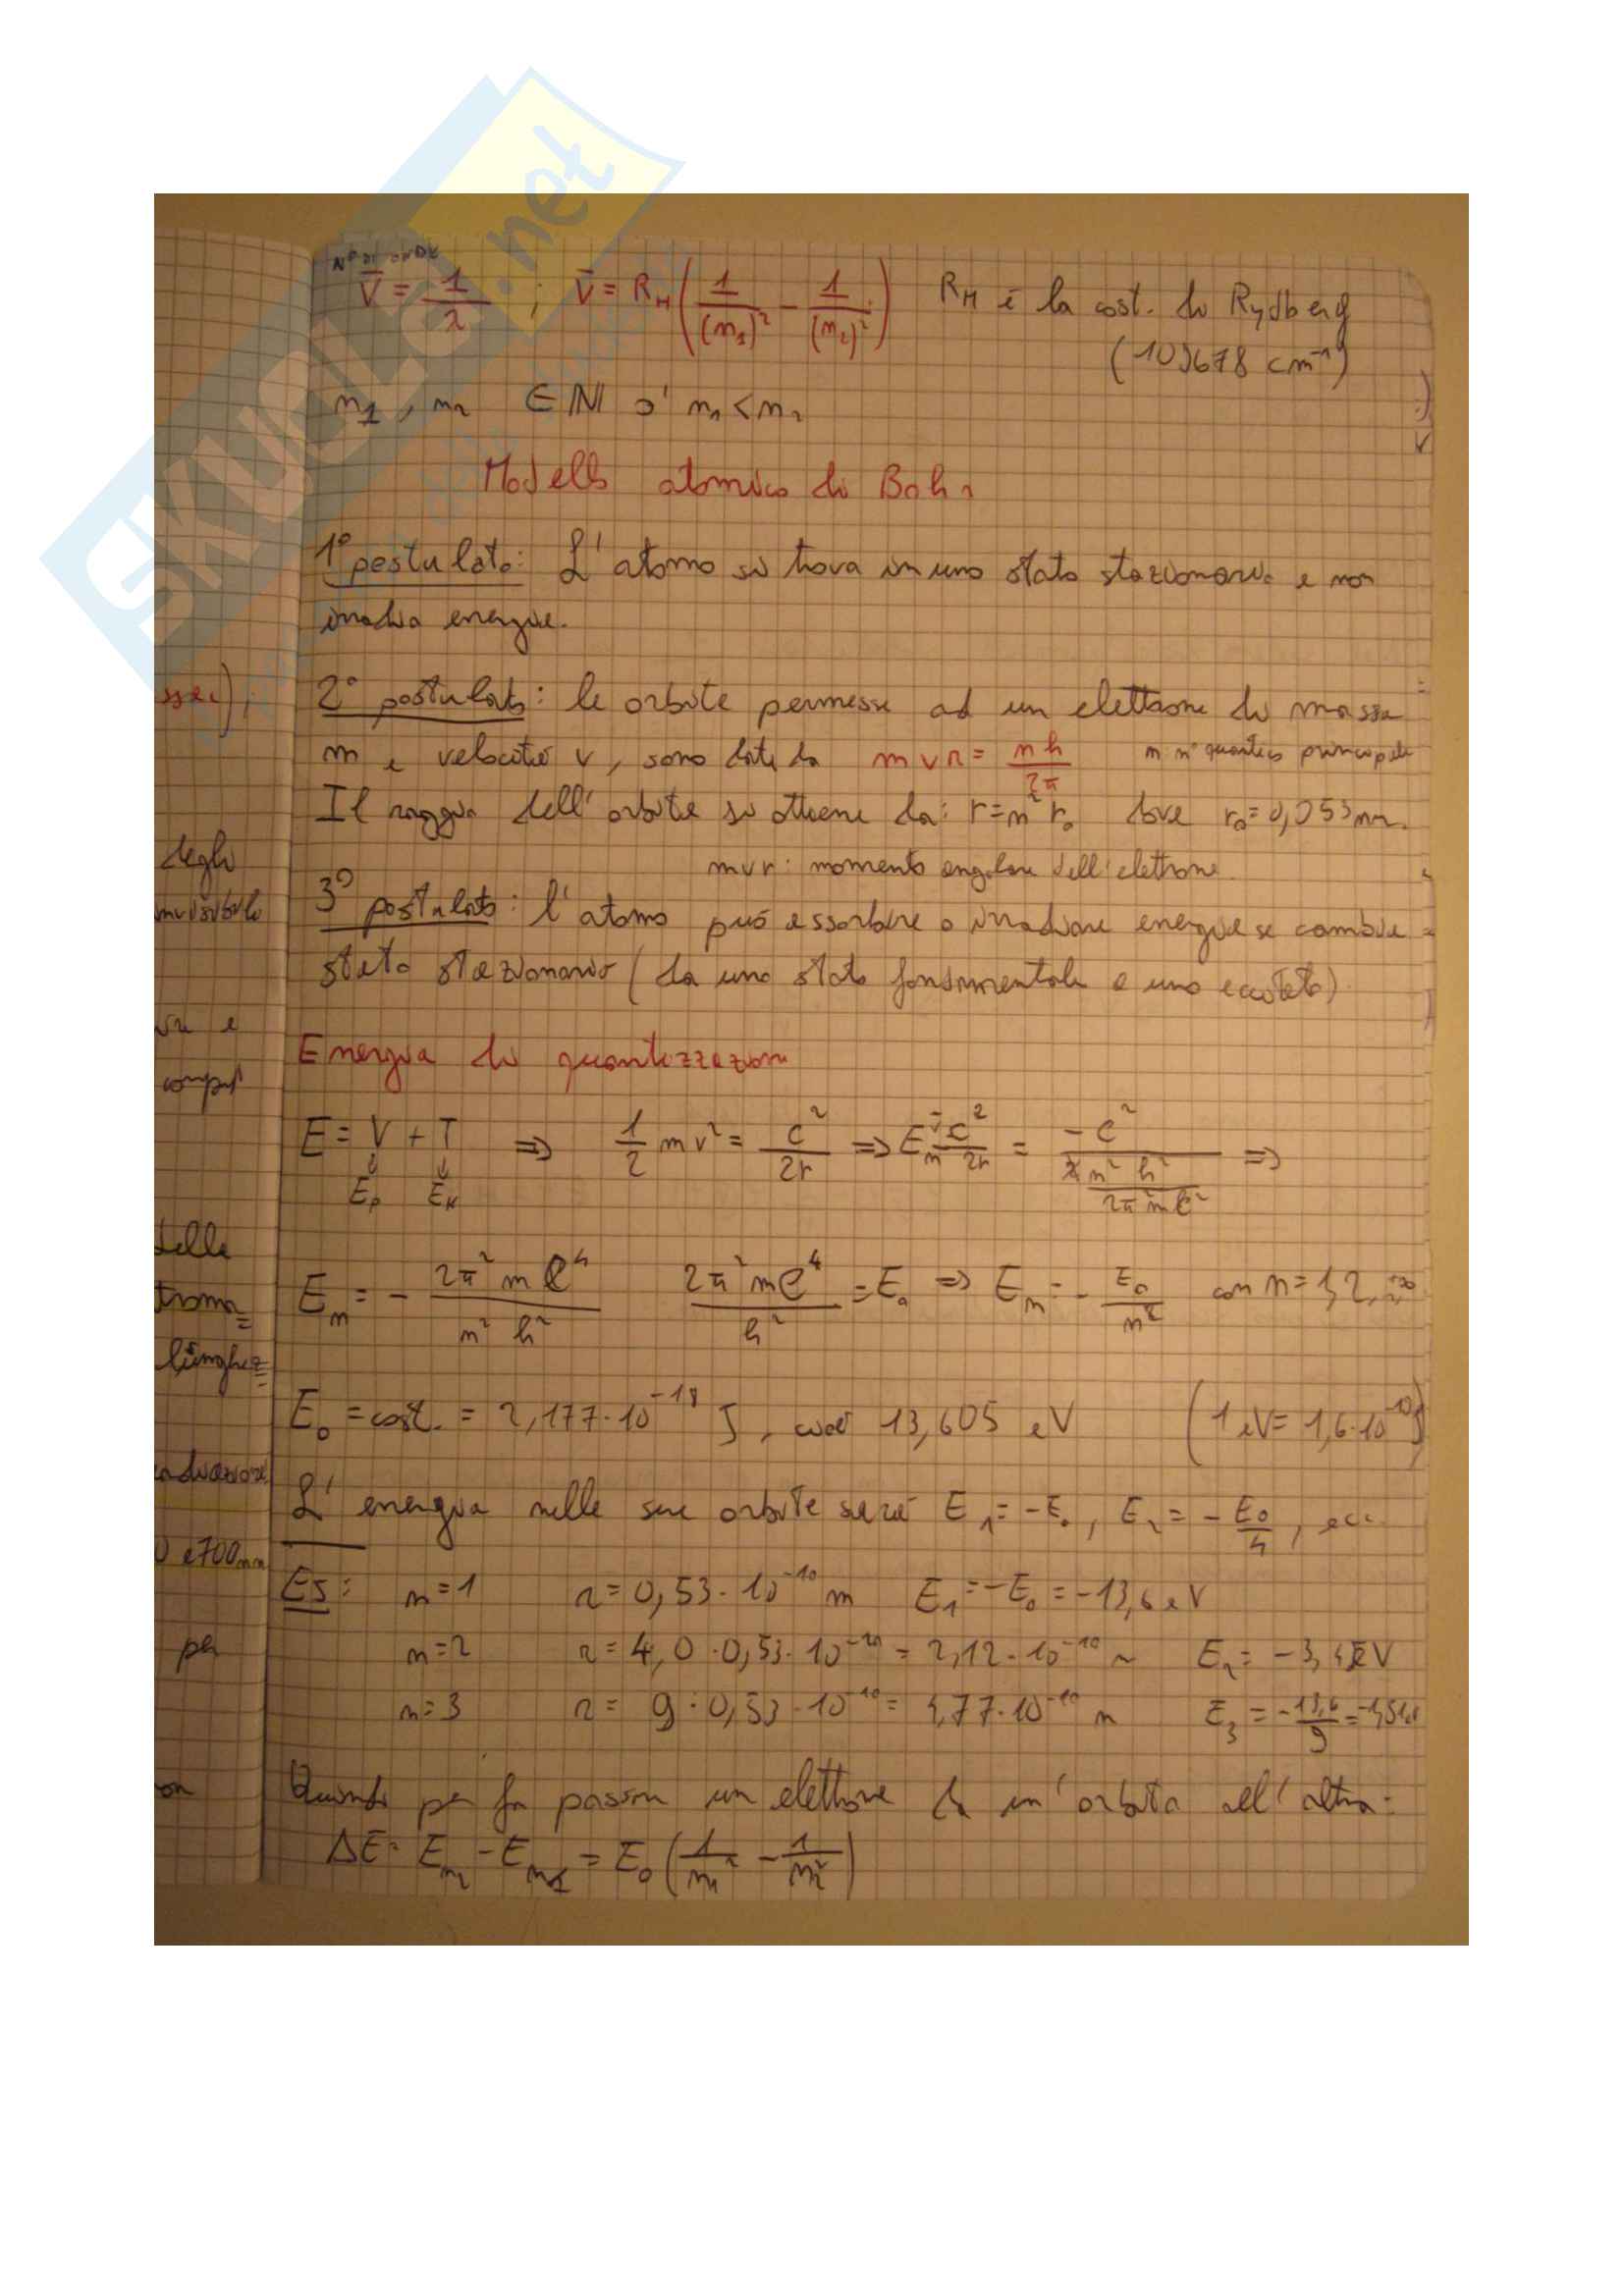 N° DI ONDE
ν̄ = 1/λ ; ν̄ = R_H (1/(n₁)² - 1/(n₂)²) R_H è la cost. di Rydberg
(109678 cm⁻¹)
n₁, n₂ ∈ ℕ n₁ < n₂
Modello atomico di Bohr
1° postulato: L'atomo si trova in uno stato stazionario e non
irradia energia.
2° postulato: le orbite permesse ad un elettrone di massa
m e velocità v, sono date da mvr = nh/2π n n° quantico principale
Il raggio dell'orbita si ottiene da: r = n² r₀ dove r₀ = 0,053 nm.
mvr: momento angolare dell'elettrone.
3° postulato: l'atomo può assorbire o irradiare energia se cambia
stato stazionario (da uno stato fondamentale a uno eccitato)
Energia di quantizzazione
E = V + T ⇒ 1/2 mv² = e²/2r ⇒ Eₙ = -e²/2r = -e²/(2 n² h²/2π² m e²) ⇒
E_p E_k
Eₙ = - 2π² m e⁴/n² h² 2π² m e⁴/h² = E₀ ⇒ Eₙ = - E₀/n² con n = 1, 2, ..., ∞
E₀ = cost. = 2,177·10⁻¹⁸ J, cioè 13,605 eV (1 eV = 1,6·10⁻¹⁹ J)
L'energia nelle sue orbite sarà E₁ = -E₀, E₂ = - E₀/4, ecc.
Es: n=1 r = 0,53·10⁻¹⁰ m E₁ = -E₀ = -13,6 eV
n=2 r = 4,0·0,53·10⁻¹⁰ = 2,12·10⁻¹⁰ m E₂ = -3,4 eV
n=3 r = 9·0,53·10⁻¹⁰ = 4,77·10⁻¹⁰ m E₃ = -13,6/9 = -1,51 eV
Quindi per far passare un elettrone da un'orbita all'altra:
ΔE = E_n₂ - E_n₁ = E₀ (1/n₁² - 1/n₂²)
degli
invisibile
delle
lunghez=
0 e 700 nm
per
SKUOLA.net